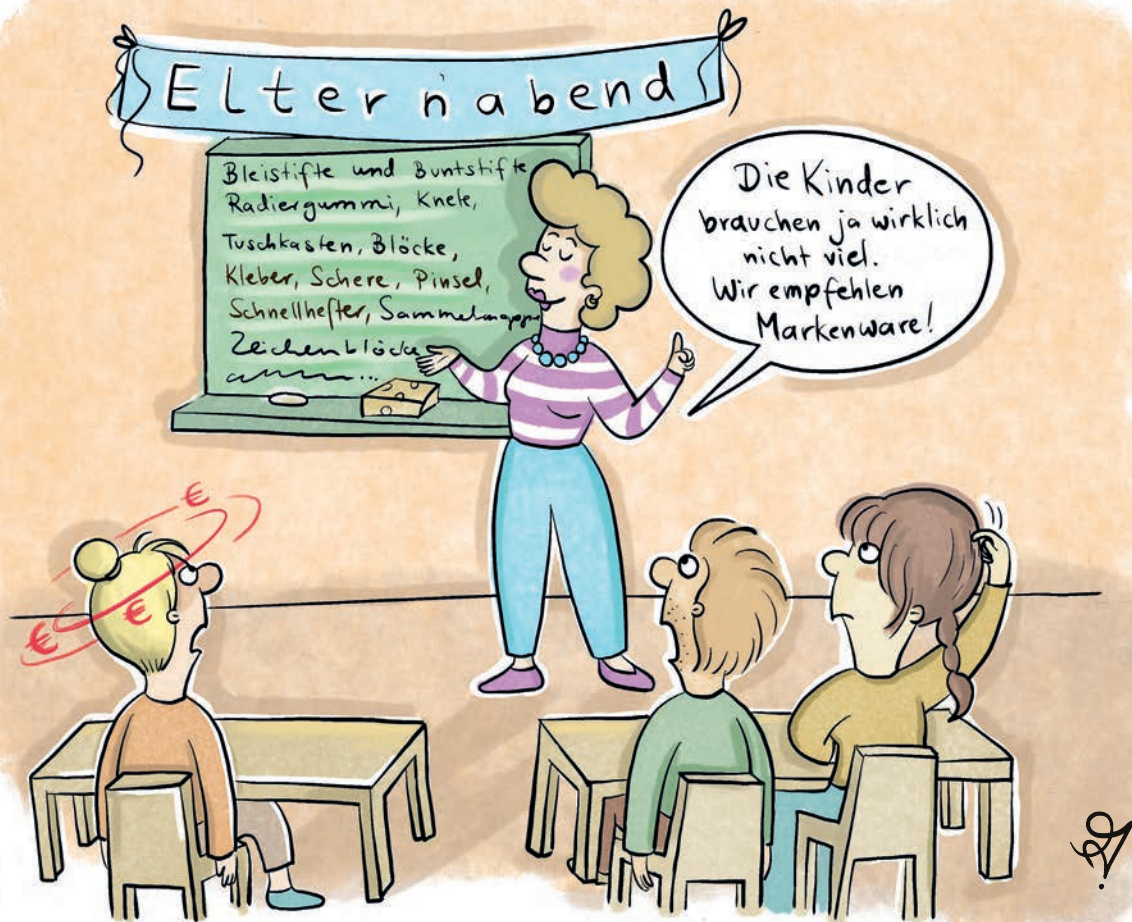 Elternabend
Bleistifte und Buntstifte
Radiergummi, Knete,
Tuschkasten, Blöcke,
Kleber, Schere, Pinsel,
Schnellhefter,
Zeichenblöcke
Die Kinder
brauchen ja wirklich
nicht viel.
Wir empfehlen
Markenware!
€
€
€